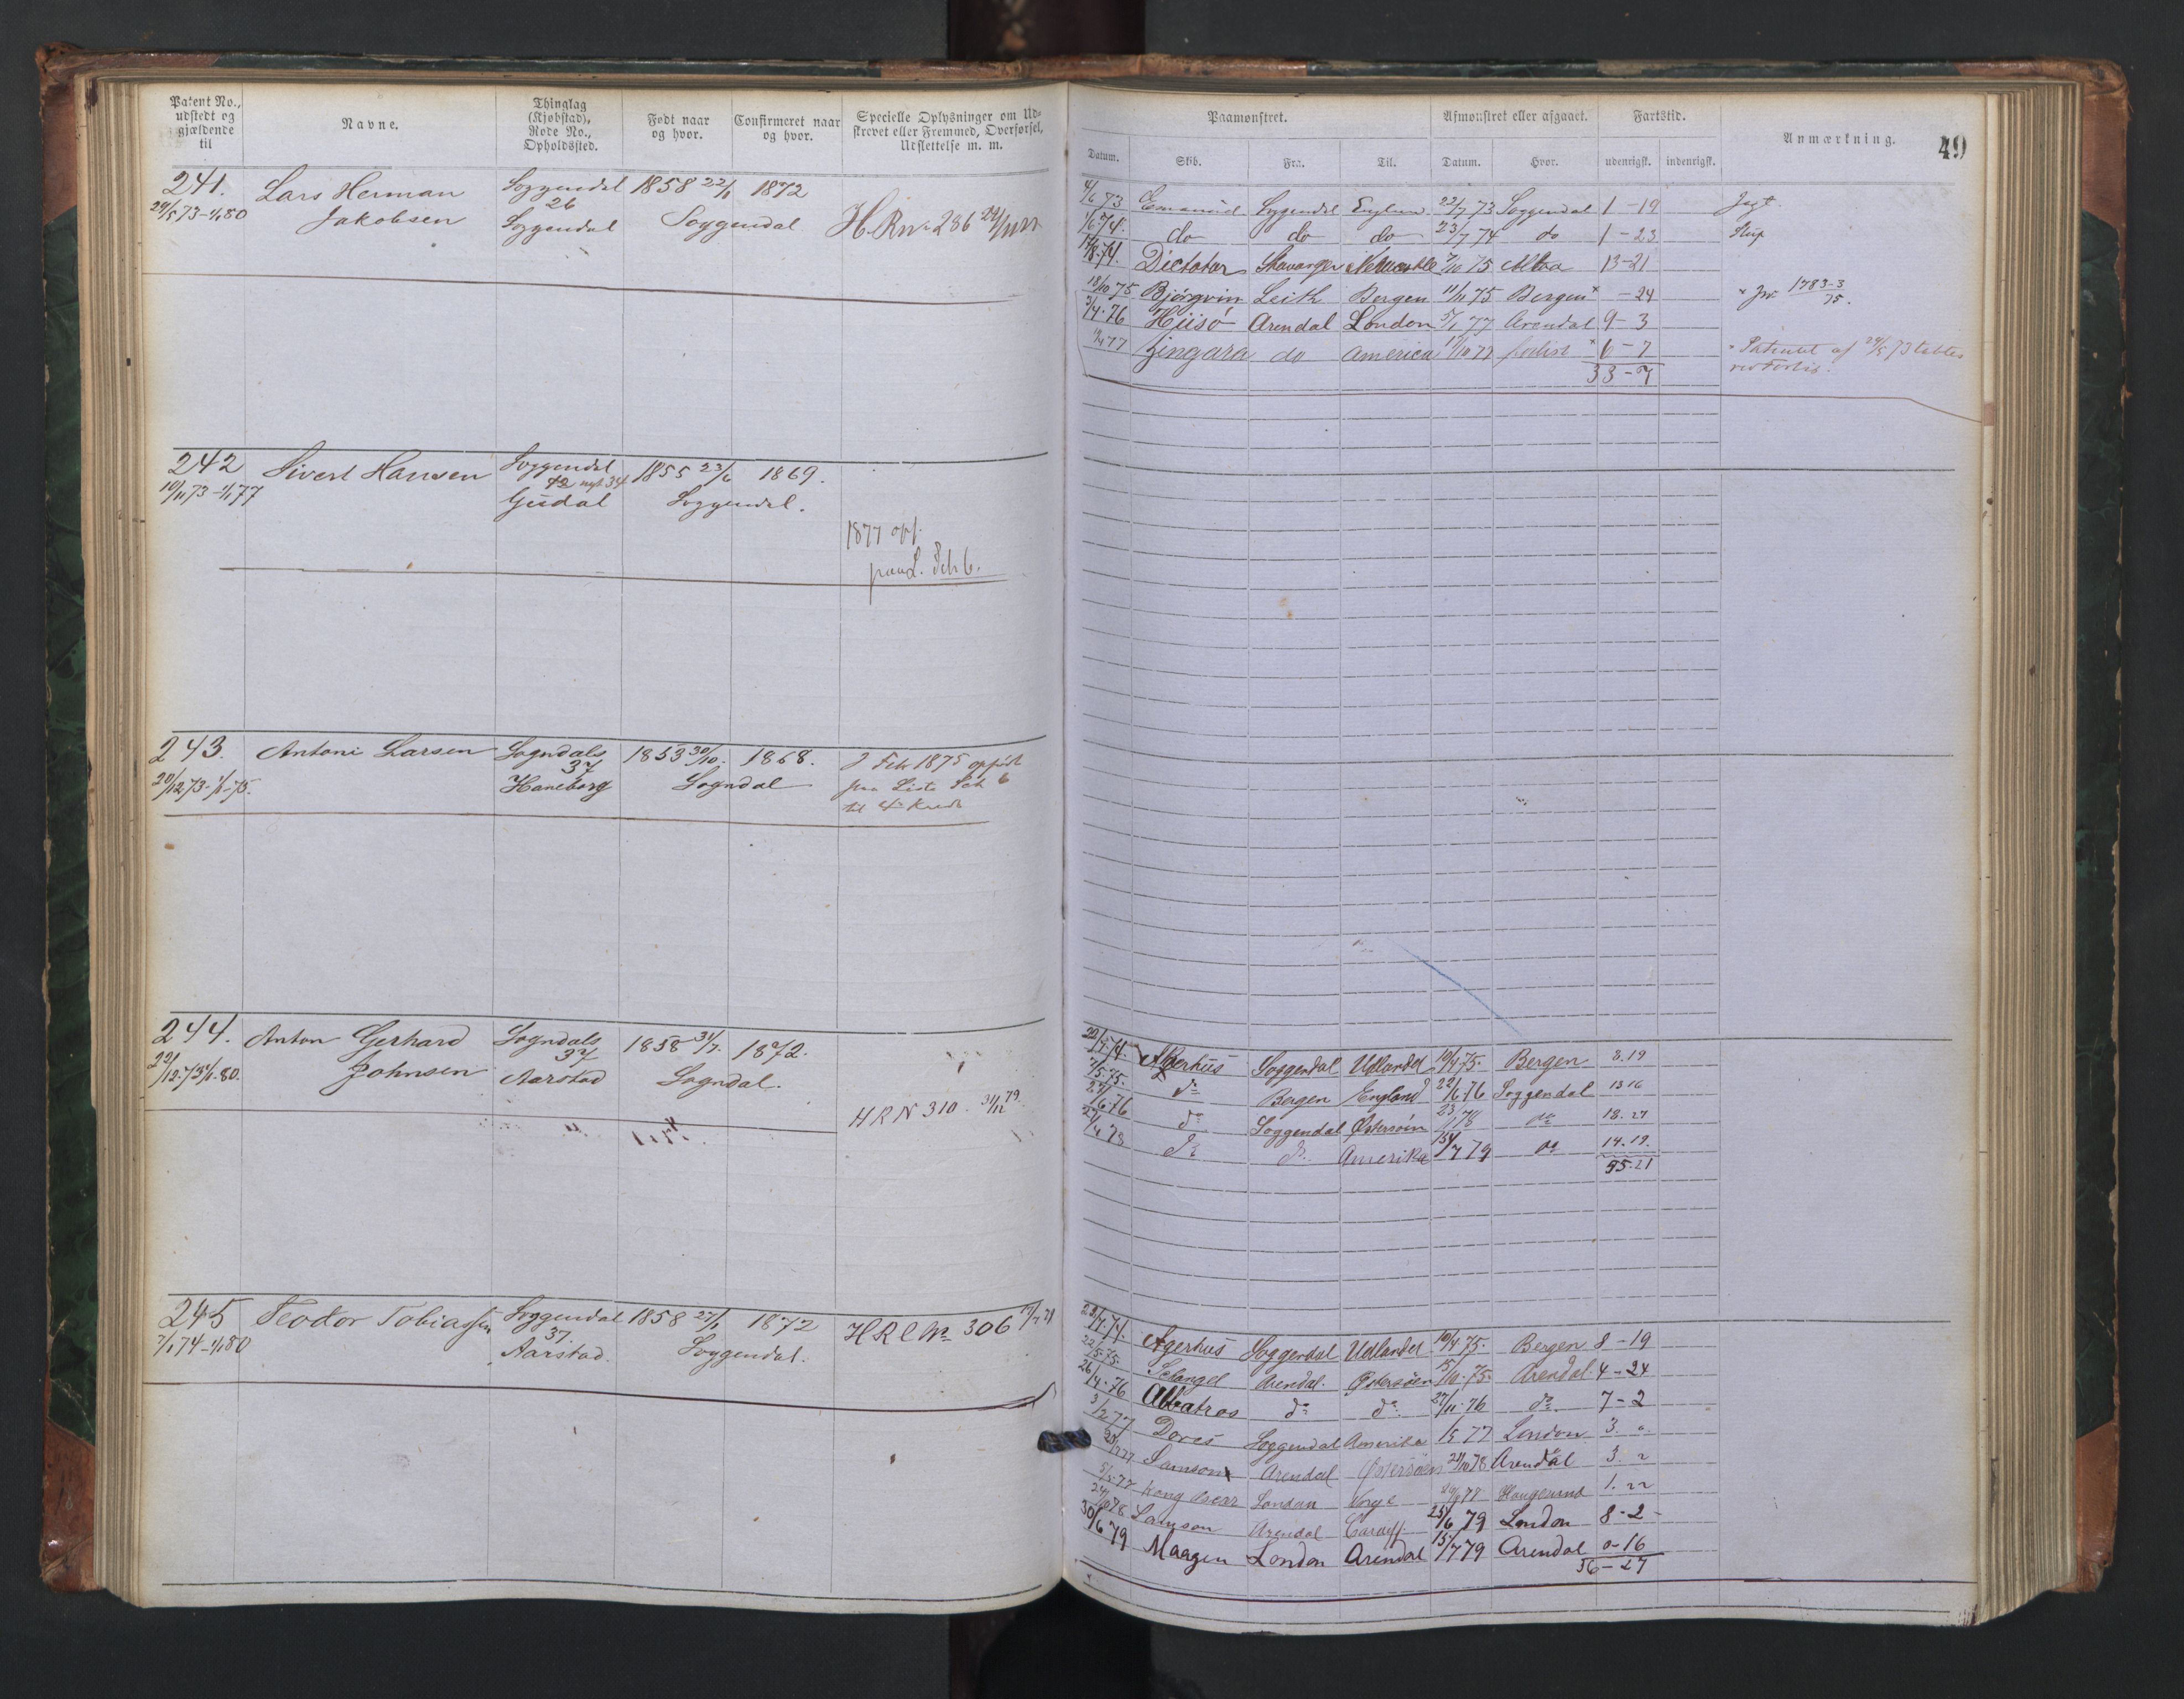 Patent No., udstedt og gjældende til
Navne.
Thinglag (Kjøbstad), Rode No., Opholdssted.
Født naar og hvor.
Confirmeret naar og hvor.
Specielle Oplysninger om Udskrevet eller Fremmed, Overførsel, Udslettelse m. m.
Paamønstret.
Afmønstret eller afgaaet.
Fartstid.
Anmærkning.
49
Datum.
Skib.
Fra.
Til.
Datum.
Hvor.
udenrigsk.
indenrigsk.
241. Lars Herman Soggendal 1858 22/1 1872
29/5 73-1/1 80 Jakobsen 26 Soggendal Soggendal
4/6 73 Emanuel Soggendal England 22/7 73 Soggendal 1-19 Jagt.
1/6 74. do do do 23/7 74 do 1-23 Slup
17/8-74. Dictator Stavanger Newcastle 7/10 75 13-21
13/10 75 Bjørgvin Leith Bergen 11/11 75 Bergen x -24
3/4-76 Hisø Arendal London 5/1 77 Arendal 9-3
Zingara do America forlist x 6-7 x Patentet af 29/5 73 tabtes
33-7 ved Forlis.
242 Sivert Hansen Soggendal 1855 23/6 1869.
10/11 73-1/1 77 42 nyt 34
Gudal Soggendal.
1877 opf.
paa L. Sch 6.
243. Antoni Larsen Sogndals 1853 30/10. 1868. I Febr 1875 opført
20/12 73-1/1-75. 37 Haneberg Sogndal paa Liste Sch 6
til 4
244. Anton Gerhard Sogndals 1858 31/7. 1872.
22/12.73-1/1.80. Johnsen 37 Aarstad Sogndal.
HRN 310. 31/12 79.
22/7.74. Agerhus Soggendal Udlandet 10/4 75. Bergen 8.19
7/5.75. do Bergen England 22/6 76 Soggendal 13 16
27/6.76 do Soggendal Østersøen 23/1 78 do 18.27
27/4 78 do do Amerika 15/7 79 do 14.19.
55.21
245 Teodor Tobiassen Soggendal 1858 27/1 1872 HRC No 306
7/1 74-1/1 80 37. Aarstad. Soggendal.
22/7.74. Agerhus Soggendal Udlandet 10/4 75. Bergen 8-19
22/5.75. Arendal. Østersøen 15/10.75. Arendal 4-24
26/4.76 Albatros do do. 27/11.76 do. 7-2
3/2 77 Soggendal Amerika 1/5 77 London 3.
Samson Arendal Østersøen 24/10 78 Arendal 3.
5/5.77 Kong Oscar London Norge Haugesund 1.22
24/10 78 Samson Arendal Cardiff 25/6 79 London 8-2-
30/6 79 Maagen London Arendal 15/7 79 Arendal 0-16
36-27